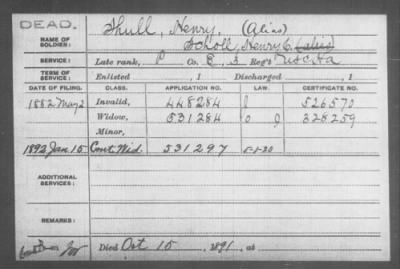 DEAD.
NAME OF SOLDIER: Shull, Henry. (Alias)
Scholl, Henry C. (alias)
SERVICE: Late rank, P Co. E, 3 Reg't U.S.C.H.A.
TERM OF SERVICE: Enlisted , 1 Discharged , 1
DATE OF FILING. CLASS. APPLICATION NO. LAW. CERTIFICATE NO.
1882 May 2 Invalid, 448284 526570
Widow, 531284 328259
Minor,
1892 Jan 15 Cont Wid. 531297
ADDITIONAL SERVICES:
REMARKS:
Died Oct 15, 1891, at